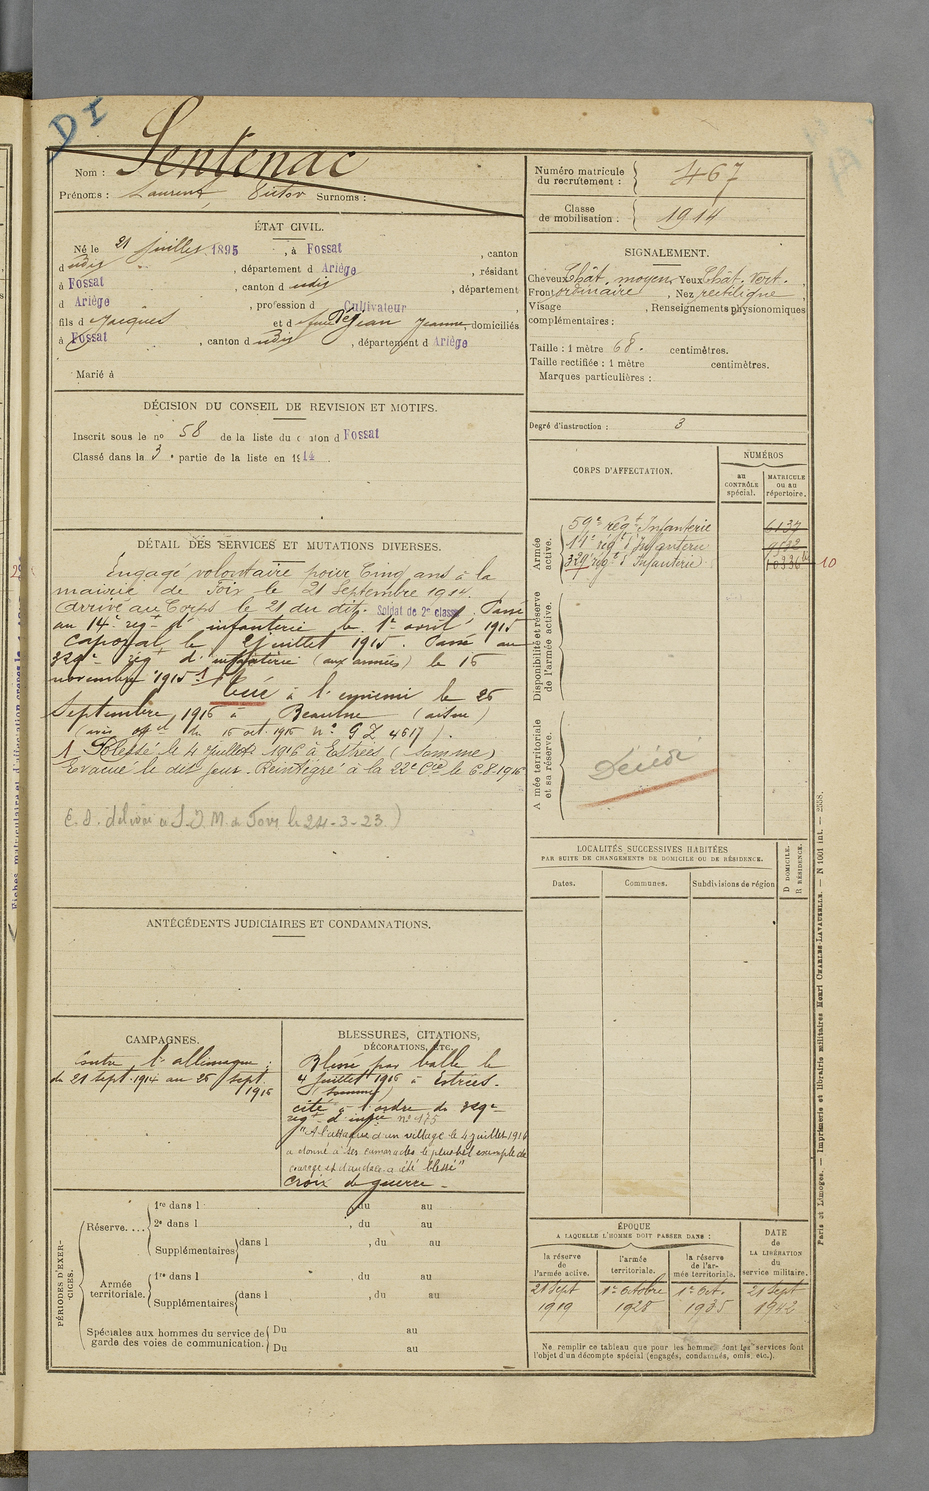 DI
Nom : Sentenac
Prénoms : Laurent, Victor Surnoms :
Numéro matricule du recrutement : 467
Classe de mobilisation : 1914
ÉTAT CIVIL.
Né le 21 juillet 1895, à Fossat, canton
d udit, département d Ariège, résidant
à Fossat, canton d udit, département
d Ariège, profession d Cultivateur
fils d Jacques et d Jeanne, domiciliés
à Fossat, canton d udit, département d Ariège
Marié à
SIGNALEMENT.
Cheveux Chât. moyen, Yeux Chât. vert.
Front ordinaire, Nez rectiligne,
Visage , Renseignements physionomiques
complémentaires :
Taille : 1 mètre 68. centimètres.
Taille rectifiée : 1 mètre centimètres.
Marques particulières :
Degré d'instruction : 3
DÉCISION DU CONSEIL DE REVISION ET MOTIFS.
Inscrit sous le no 58 de la liste du canton d Fossat
Classé dans la 3e partie de la liste en 1914
DÉTAIL DES SERVICES ET MUTATIONS DIVERSES.
Engagé volontaire pour Cinq ans à la
mairie de Foix le 21 Septembre 1914.
Arrivé au Corps le 21 du dit. Soldat de 2e classe, Passé
au 14e régt d'infanterie le 1er avril 1915
Caporal le 2 juillet 1915. Passé au
329e régt d'infanterie (aux armées) le 16
novembre 1915. 1 Tué à l'ennemi le 26
Septembre 1916 à Beaulne (aisne)
(avis offel du 16 oct. 1916 no G Z 4617).
1. Blessé le 4 Juillet 1916 à Estrées (Somme)
Evacué le dit jour. Réintégré à la 22e Cie le 6-8-1916
le 24-3-23)
CORPS D'AFFECTATION.
NUMÉROS
au CONTRÔLE spécial.
MATRICULE ou au répertoire.
Armée active.
59e régt Infanterie 6137
14e régt d'Infanterie 9532
329e régt d'Infanterie 10336 10
Disponibilité et réserve de l'armée active.
Armée territoriale et sa réserve.
Décédé
LOCALITÉS SUCCESSIVES HABITÉES
PAR SUITE DE CHANGEMENTS DE DOMICILE OU DE RÉSIDENCE.
Dates.
Communes.
Subdivisions de région
D DOMICILE.
R RÉSIDENCE.
ANTÉCÉDENTS JUDICIAIRES ET CONDAMNATIONS.
CAMPAGNES.
Contre l'allemagne :
du 21 sept. 1914 au 26 sept.
1916
BLESSURES, CITATIONS,
DÉCORATIONS, ETC.
Blessé par balle le
4 juillet 1916 à Estrées.
(Somme)
cité à l'ordre du 329e
régt d'infie no 175
"A l'attaque d'un village le 4 juillet 1916
a donné à ses camarades le plus bel exemple de
courage et d'audace. a été blessé"
Croix de guerre.
PÉRIODES D'EXERCICES.
Réserve.... 1re dans l , du au
2e dans l , du au
Supplémentaires dans l , du au
Armée territoriale. 1re dans l , du au
Supplémentaires dans l , du au
Spéciales aux hommes du service de garde des voies de communication. Du au
Du au
ÉPOQUE
A LAQUELLE L'HOMME DOIT PASSER DANS :
la réserve de l'armée active.
l'armée territoriale.
la réserve de l'armée territoriale.
DATE de LA LIBÉRATION du service militaire.
21 Sept 1919
1er Octobre 1928
1er Oct. 1935
21 Sept 1942
Ne remplir ce tableau que pour les hommes dont les services font
l'objet d'un décompte spécial (engagés, condamnés, omis, etc.).
Paris et Limoges. — Imprimerie et librairie militaires Henri CHARLES-LAVAUZELLE. — N° 1001 int. — 2558.